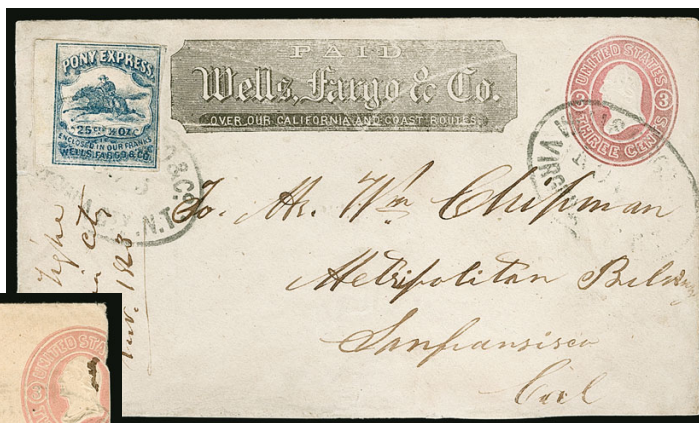 PONY EXPRESS
25 Cts ½ OZ
ENCLOSED IN OUR FRANKS
WELLS, FARGO & CO.
PAID
Wells, Fargo & Co.
OVER OUR CALIFORNIA AND COAST ROUTES.
UNITED STATES
3 3
THREE CENTS
& Co.
N.T.
VIRG
To. Mr. Wm Chipman
Metripolitan
Sanfransisco
Cal
UNITED STA